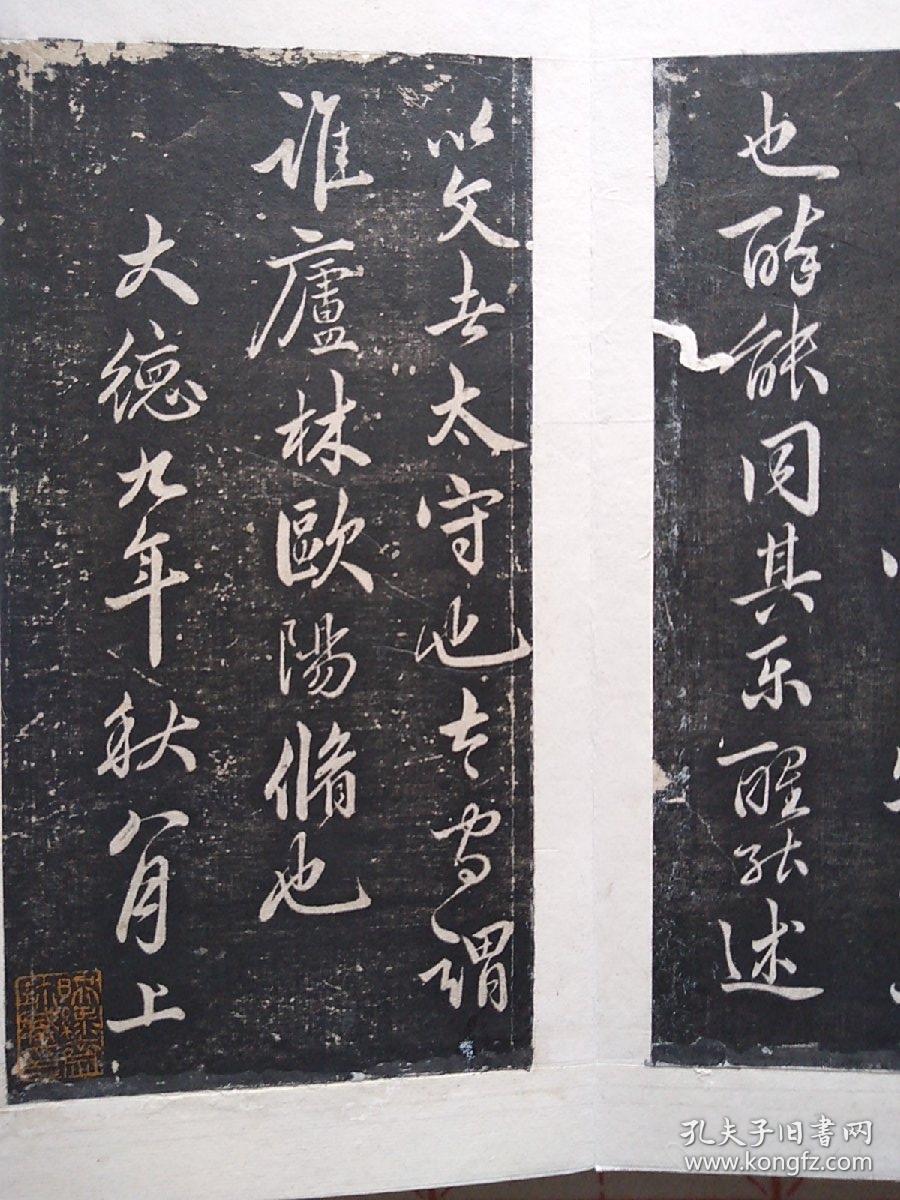 也醉能同其乐醒能述
以文者太守也太守谓
谁廬林歐陽脩也
大德九年秋八月上
孔夫子旧書网
www.kongfz.com